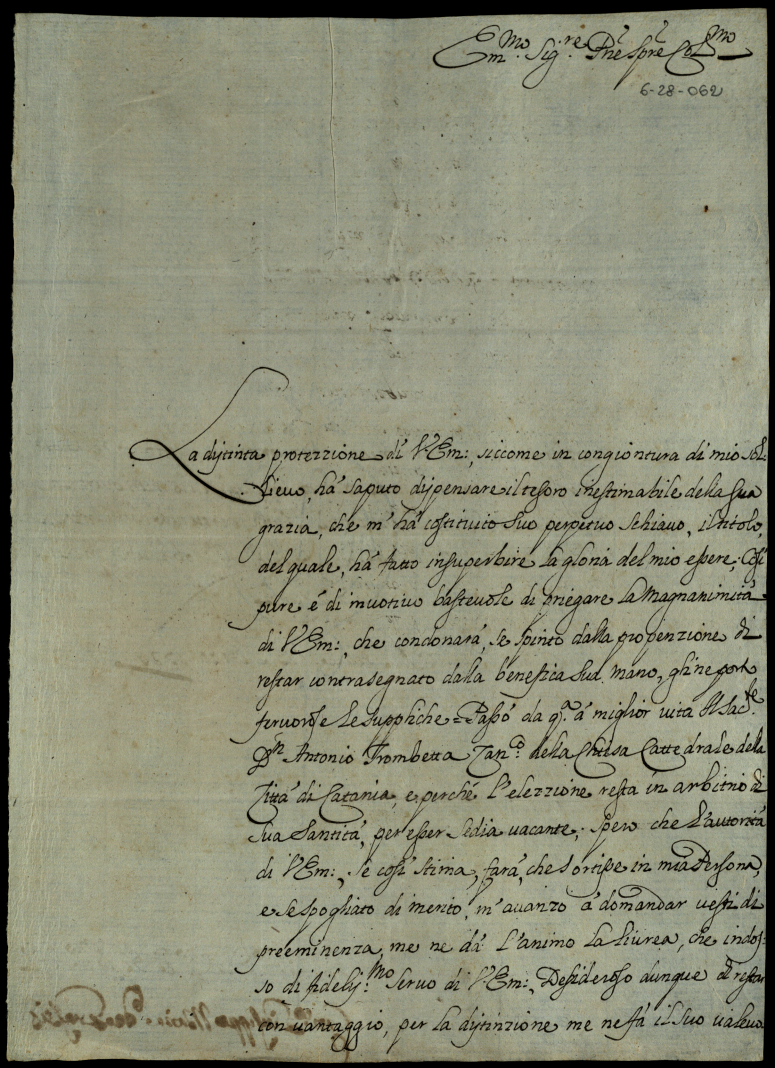 Em.mo Sig.re Pñe Spre Col.mo
6-28-062
La distinta protezzione di V Em:, siccome in congiontura di mio sol:
lievo hà saputo dispensare il tesoro inestimabile della sua
grazia, che m'hà costituito suo perpetuo schiavo, il titolo,
del quale, hà fatto insuperbire la gloria del mio essere; Così
pure è di muotivo bastevole di priegare la Magnanimità
di V Em:, che condonarà, se spinto dalla propenzione di
restar contrasegnato dalla benefica sua mano, gli ne porto
fervorose le suppliche = Passò da q.a à miglior vita Il Sac.te
D.n Antonio Trombetta Can.co della Chiesa Cattedrale della
Città di Catania, e perché l'elezzione resta in arbitrio di
Sua Santità, per esser sedia vacante; spero che l'autorità
di V Em:, se così stima, farà, che sortisse in mia Persona,
e se spogliato di merito, m'avanzo à domandar vesti di
preeminenza, me ne dà l'animo la livrea, che indos:
so di fidelis.mo servo di V Em: Desideroso dunque di restar
con vantaggio, per la distinzione me ne fà il suo valevo